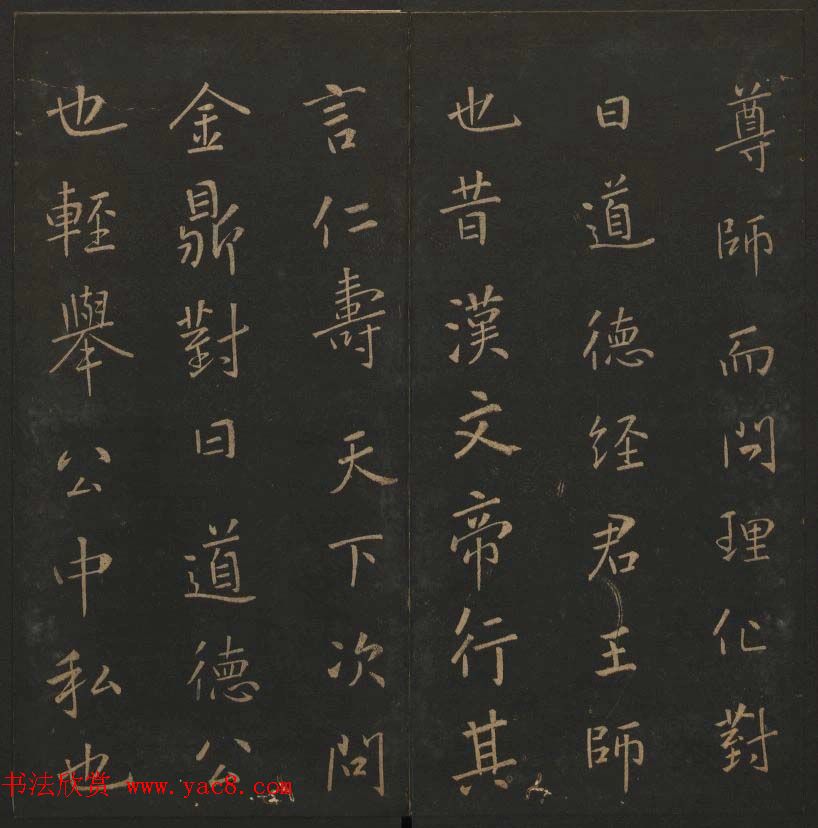 尊師而問理化對
曰道德經君王師
也昔漢文帝行其
言仁壽天下次問
金鼎對曰道德公
也輕舉公中私也
书法欣赏 www.yac8.com